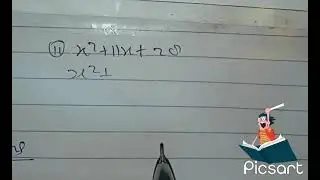 (11) x²+11x+28
x²+
Picsart